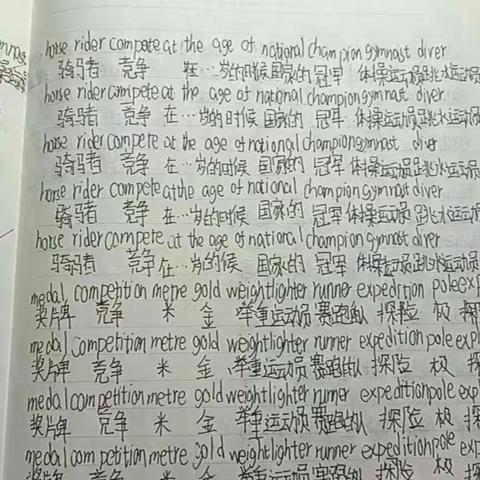 horse rider compete at the age of national champion gymnast diver
骑马者 竞争 在…岁的时候 国家的 冠军 体操运动员 跳水运动员
horse rider compete at the age of national champion gymnast diver
骑马者 竞争 在…岁的时候 国家的 冠军 体操运动员 跳水运动员
horse rider compete at the age of national champion gymnast diver
骑马者 竞争 在…岁的时候 国家的 冠军 体操运动员 跳水运动员
horse rider compete at the age of national champion gymnast diver
骑马者 竞争 在…岁的时候 国家的 冠军 体操运动员 跳水运动员
horse rider compete at the age of national champion gymnast diver
骑马者 竞争 在…岁的候 国家的 冠军 体操运动员 跳水运动员
medal competition metre gold weightlighter runner expedition pole exp
奖牌 竞争 米 金 举重运动员 赛跑的人 探险 极 探
medal competition metre gold weightlighter runner expedition pole expl
奖牌 竞争 米 金 举重运动员 赛跑的人 探险 极 探
medal competition metre gold weightlighter runner expedition pole expl
奖牌 竞争 米 金 举重运动员 赛跑的人 探险 极 探
medal competition metre gold weightlighter runner expedition pole exp
奖牌 竞争 米 金 举重运动员 赛跑的人 探险 极 探